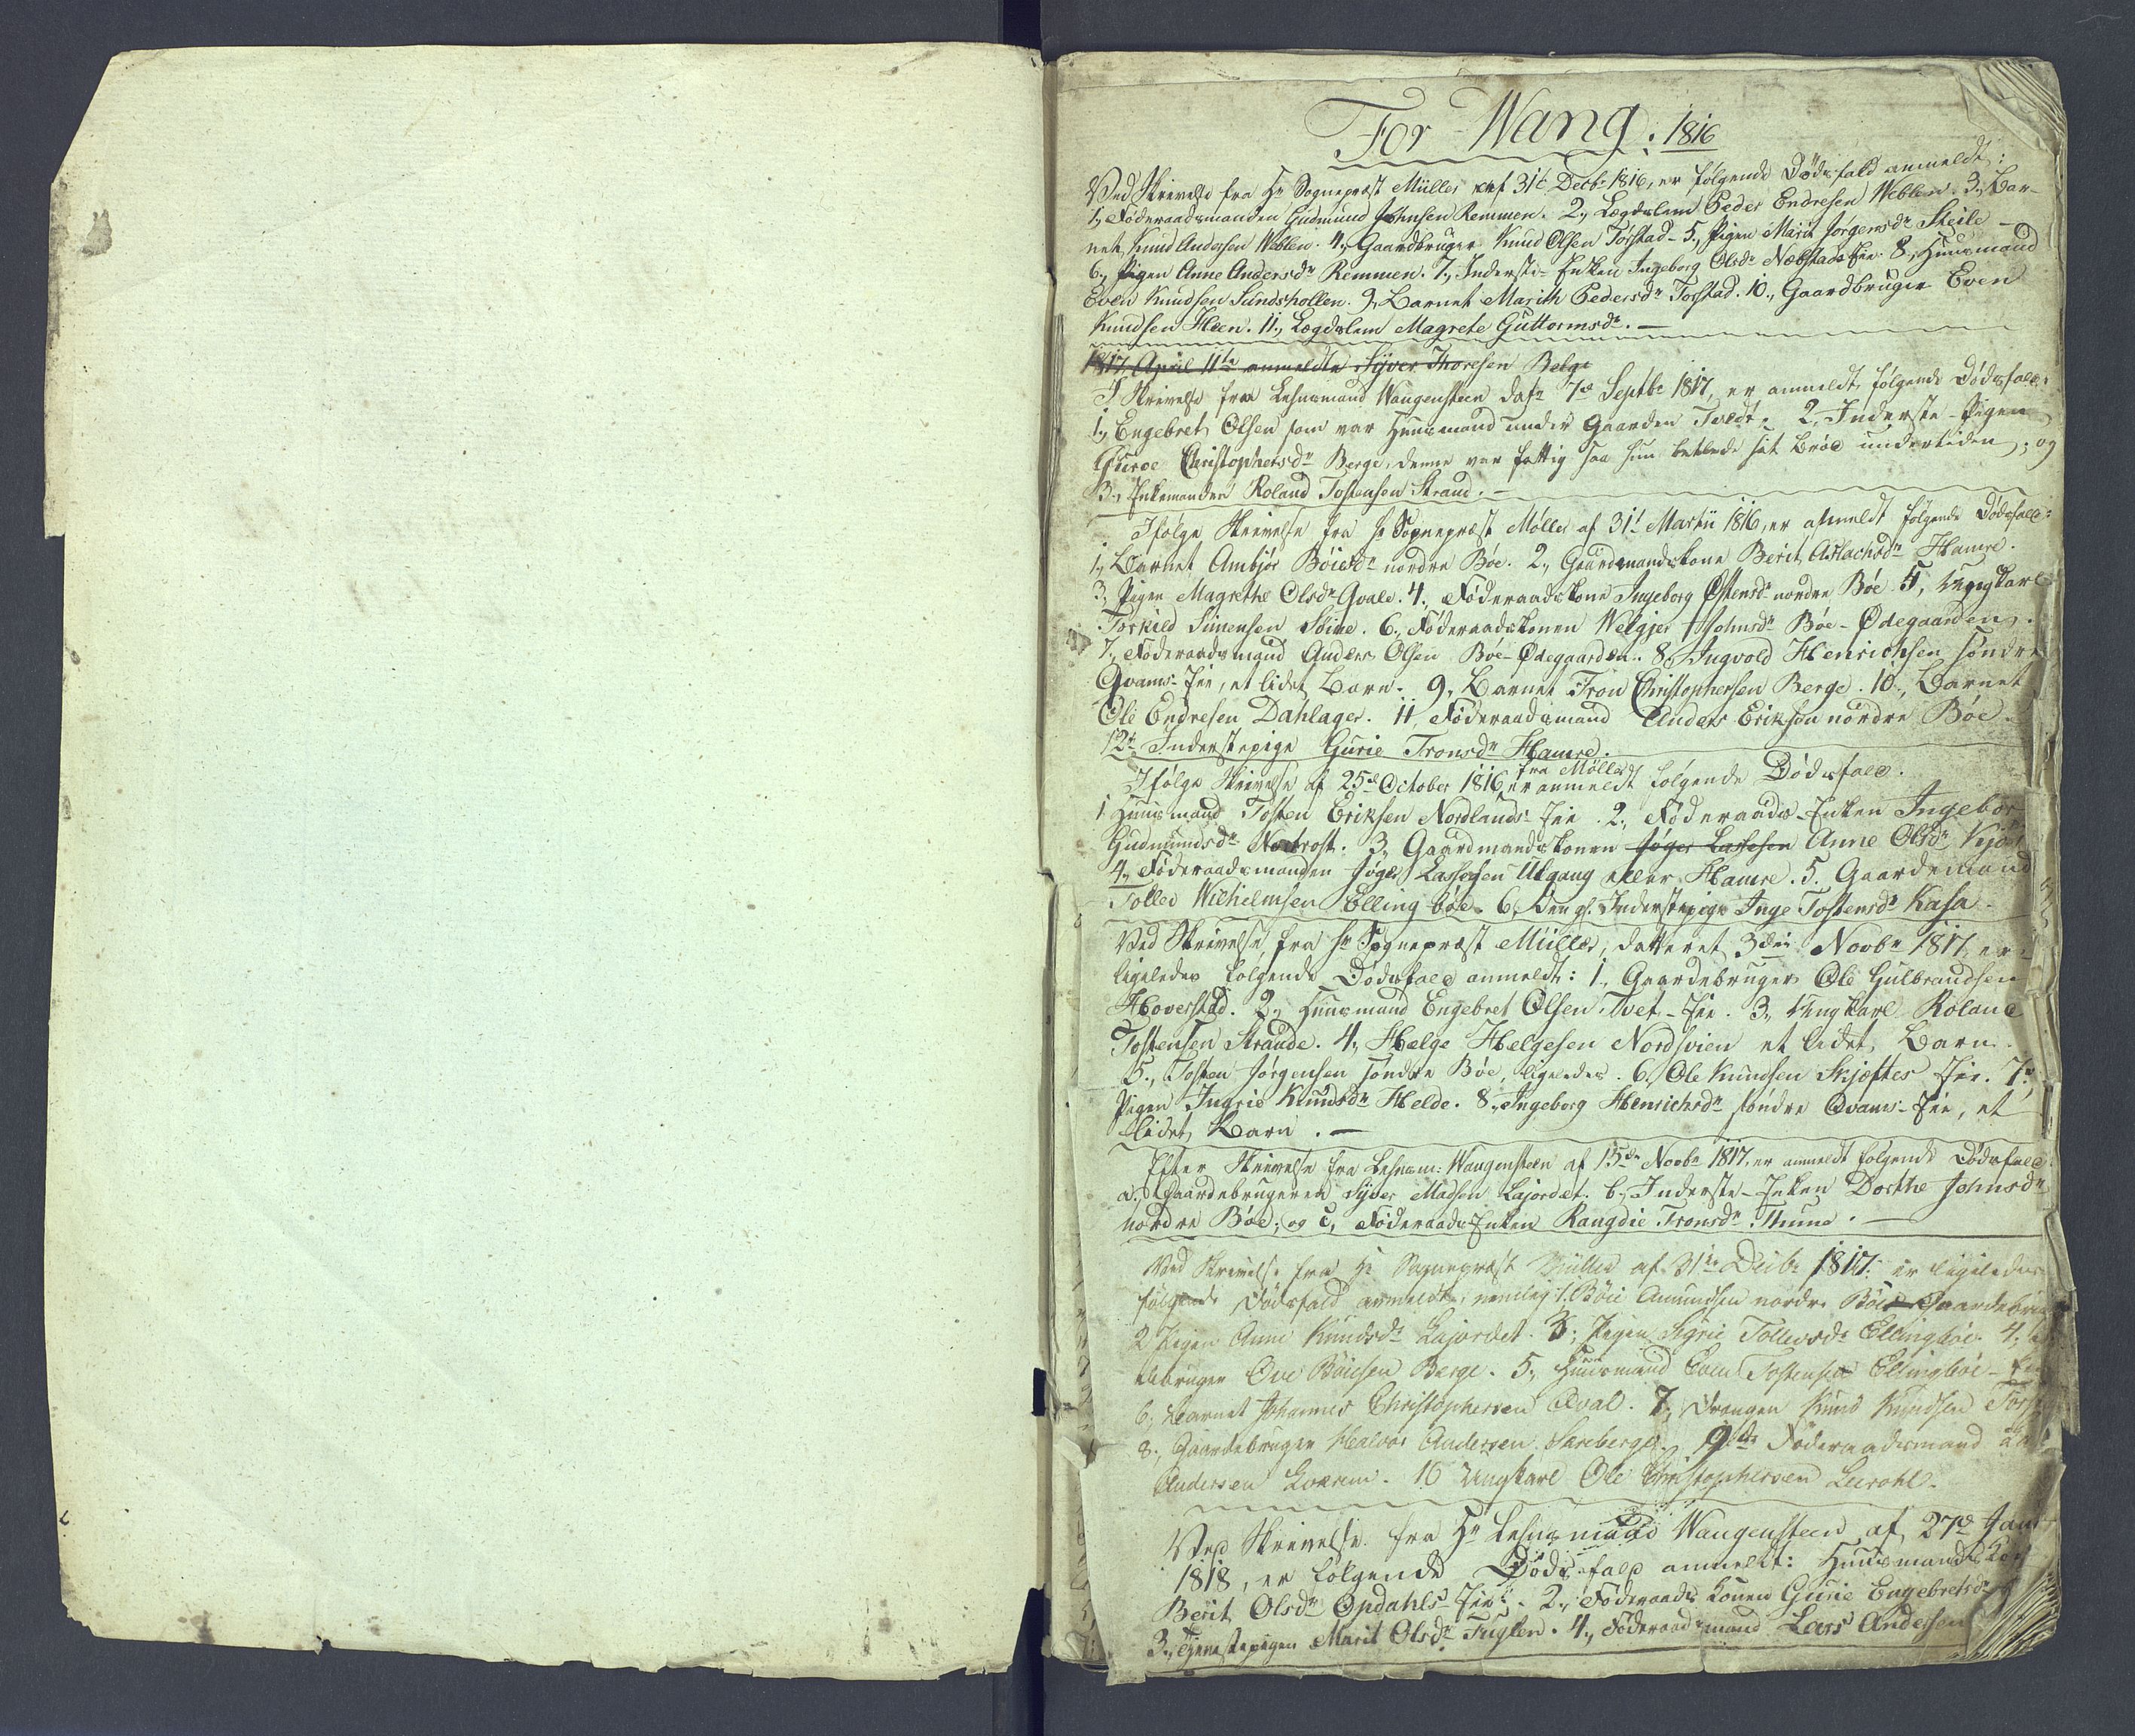 For Wang. 1816
Ved Skrivelse fra Hr Sognepræst Müller af 31te Decbr 1816, er følgende Dødsfald anmeldt:
1., Føderaadsmanden Gudmund Johnsen Remmen. 2., Lægdslem Peder Endresen Weblen. 3., Bar-
net Knud Andersen Weblen. 4., Gaardbruger Knud Olsen Torstad - 5., Pigen Marit Jørgensdr Skeile -
6., Pigen Anne Andersdr Remmen. 7., Inderste-Enken Ingeborg Olsdr Nøbstads Eie. 8., Huusmand
Even Knudsen Sundshollen. 9., Barnet Marith Pedersdr Torstad. 10., Gaardbruger Even
Knudsen Heen. 11., Lægdslem Magrete Guttormsdr. -
1817, April 11te anmeldte Syver Thoresen Belge
I Skrivelse fra Lehnsmand Wangensteen dat: 7de Septbr 1817, er anmeldt følgende Dødsfald:
1., Engebret Olsen som var Huusmand under Gaarden Tvedt. 2., Inderste-Pigen
Guroe Christophersdr Berge, denne var fattig saa hun betlede sit Brød undertiden; og
3., Enkemanden Roland Tostensen Strand. -
Ifølge Skrivelse fra Hr Sognepræst Møller af 31t Martii 1816, er anmeldt følgende Dødsfald:
1., Barnet Ambjør Bøiesdr nordre Bøe. 2., Gaardmandskone Berit Aslachsdr Hamre.
3., Pigen Magrethe Olsdr Qvale. 4., Føderaadskone Ingeborg Østensdr nordre Bøe. 5., Ungkarl
Torkild Simensen Søine. 6., Føderaadskonen Welgjer Johnsdr Bøe-Ødegaarden.
7., Føderaadsmand Anders Olsen Bøe-Ødegaarden. 8., Ingvold Henrichsen søndre
Qvams-Eie, et lidet Barn. 9., Barnet Tron Christophersen Berge. 10., Barnet
Ole Endresen Dahlager. 11., Føderaadsmand Anders Eriksøn nordre Bøe.
12te Inderstepige Gurie Tronsdr Hamre.
Ifølge Skrivelse af 25de October 1816 fra Møller er anmeldt følgende Dødsfald.
1 Huusmand Tosten Eriksen Nordlands-Eie. 2., Føderaads-Enken Ingebor
Gudmundsdr Nørost. 3., Gaardmandskonen Jøger Lassesen Anne Olsdr
4., Føderaadsmanden Jøger Lassesen Ulgang eller Hamre. 5. Gaardemand
Tollev Wilhelmsen Ellingbøe. 6., Den gl. Inderstepige Inge Tostensdr Kasa.
Ved Skrivelse fra Hr Sognepræst Müller, datteret 3die Novbr 1817, er
ligeledes følgende Dødsfald anmeldt: 1., Gaardebruger Ole Gulbrandsen
Hoverstad. 2., Huusmand Engebret Olsen Tvet-Eie. 3., Ungkarl Roland
Tostensen Strande. 4., Helge Helgesen Nordsvien et lidet Barn.
5., Tosten Jørgensen søndre Bøe, ligeledes. 6., Ole Knudsen Skjeftes Eie. 7.,
Pigen Ingrie Knudsdr Helde. 8., Ingeborg Henrichsdr søndre Qvams-Eie, et
lidet Barn. -
Efter Skrivelse fra Lehnsm: Wangensteen af 15de Novbr 1817, er anmeldt følgende Dødsfald:
a., Gaardebrugeren Syver Madsen Lajordet. b., Inderste-Enken Dorthe Johnsdr
nordre Bøe; og c., Føderaads Enken Rangdie Tronsdr Thune. -
Ved Skrivelse fra Hr Sognepræst Müller af 31te Decbr 1817 er ligeledes
følgende Dødsfald anmeldt, nemlig: 1. Bøie Amundsen nordre Bøe Gaardebru
2 Pigen Anne Knudsdr Lajordet. 3., Pigen Sigrie Tollevsdr Ellingbøe. 4.,
debruger Ove Bøiesen Berge. 5., Huusmand Even Tostensen Ellingbøe-Eie
6., Barnet Johannes Christophersen Qval. 7., Drengen Knud Knudsen Torst
8., Gaardebruger Halvor Andersen Sareberge. 9de Føderaadsmand
Andersen Qværn. 10 Ungkarl Ole Christophersen Leirohl.
Ved Skrivelse fra Hr Lehnsmand Wangensteen af 27de Jan
1818, er følgende Dødsfald anmeldt: Huusmandskon
Berit Olsdr Opdahls-Eie. 2., Føderaads konen Gurie Engebretsdr
3., Tjenestepigen Marit Olsdr Fuglen. 4., Føderaadsmand Lars Andersen